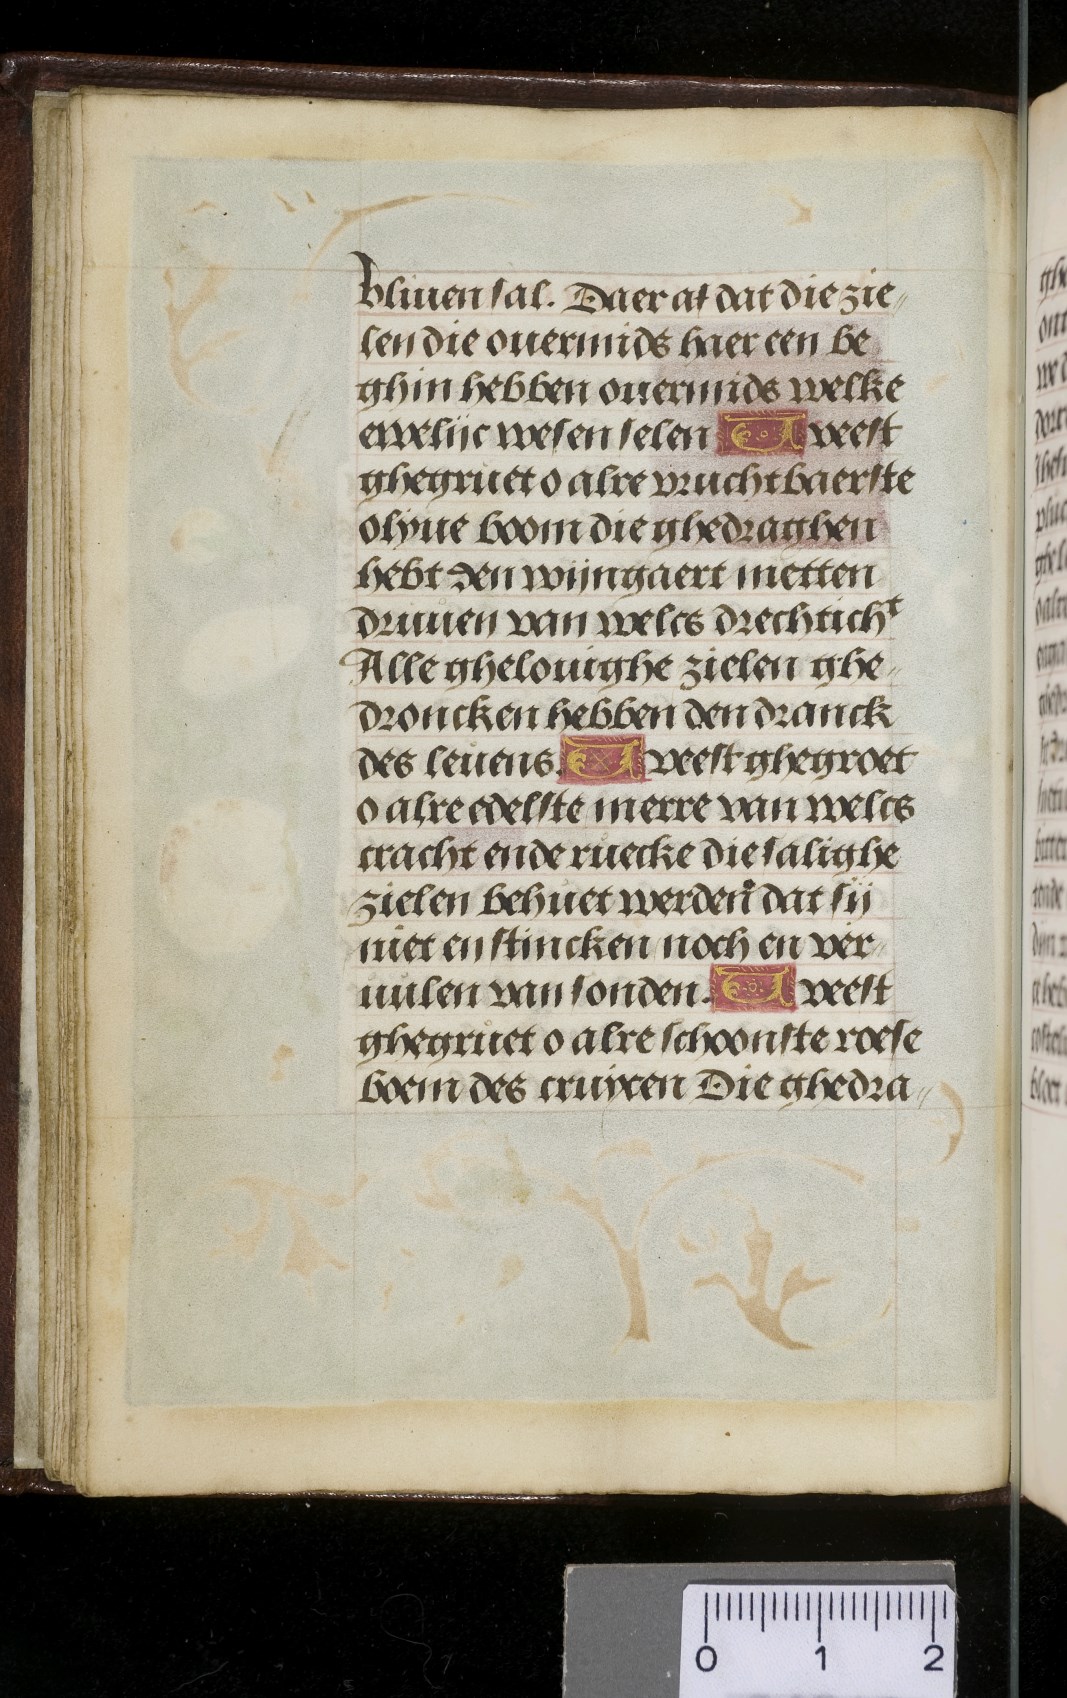 bliuen sal. Daer at dat die zie〃
len die ouermids haer een be
ghin hebben ouermids welke
ewelijc wesen selen W weest
ghegruet o alre vruchtbaerste
olyue boom die ghedraghen
hebt den wijngaert metten
druuen van welcs drechtichͭ
Alle ghelouighe zielen ghe〃
droncken hebben den dranck
des leuens. W weest ghegroet
o alre edelste merre van welcs
cracht ende ruecke die salighe
zielen behuet werden dat sij
niet en stincken noch en ver〃
uulen van sonden. W weest
ghegruet o alre schoonste roese
boem des cruycen Die ghedra〃
0 1 2